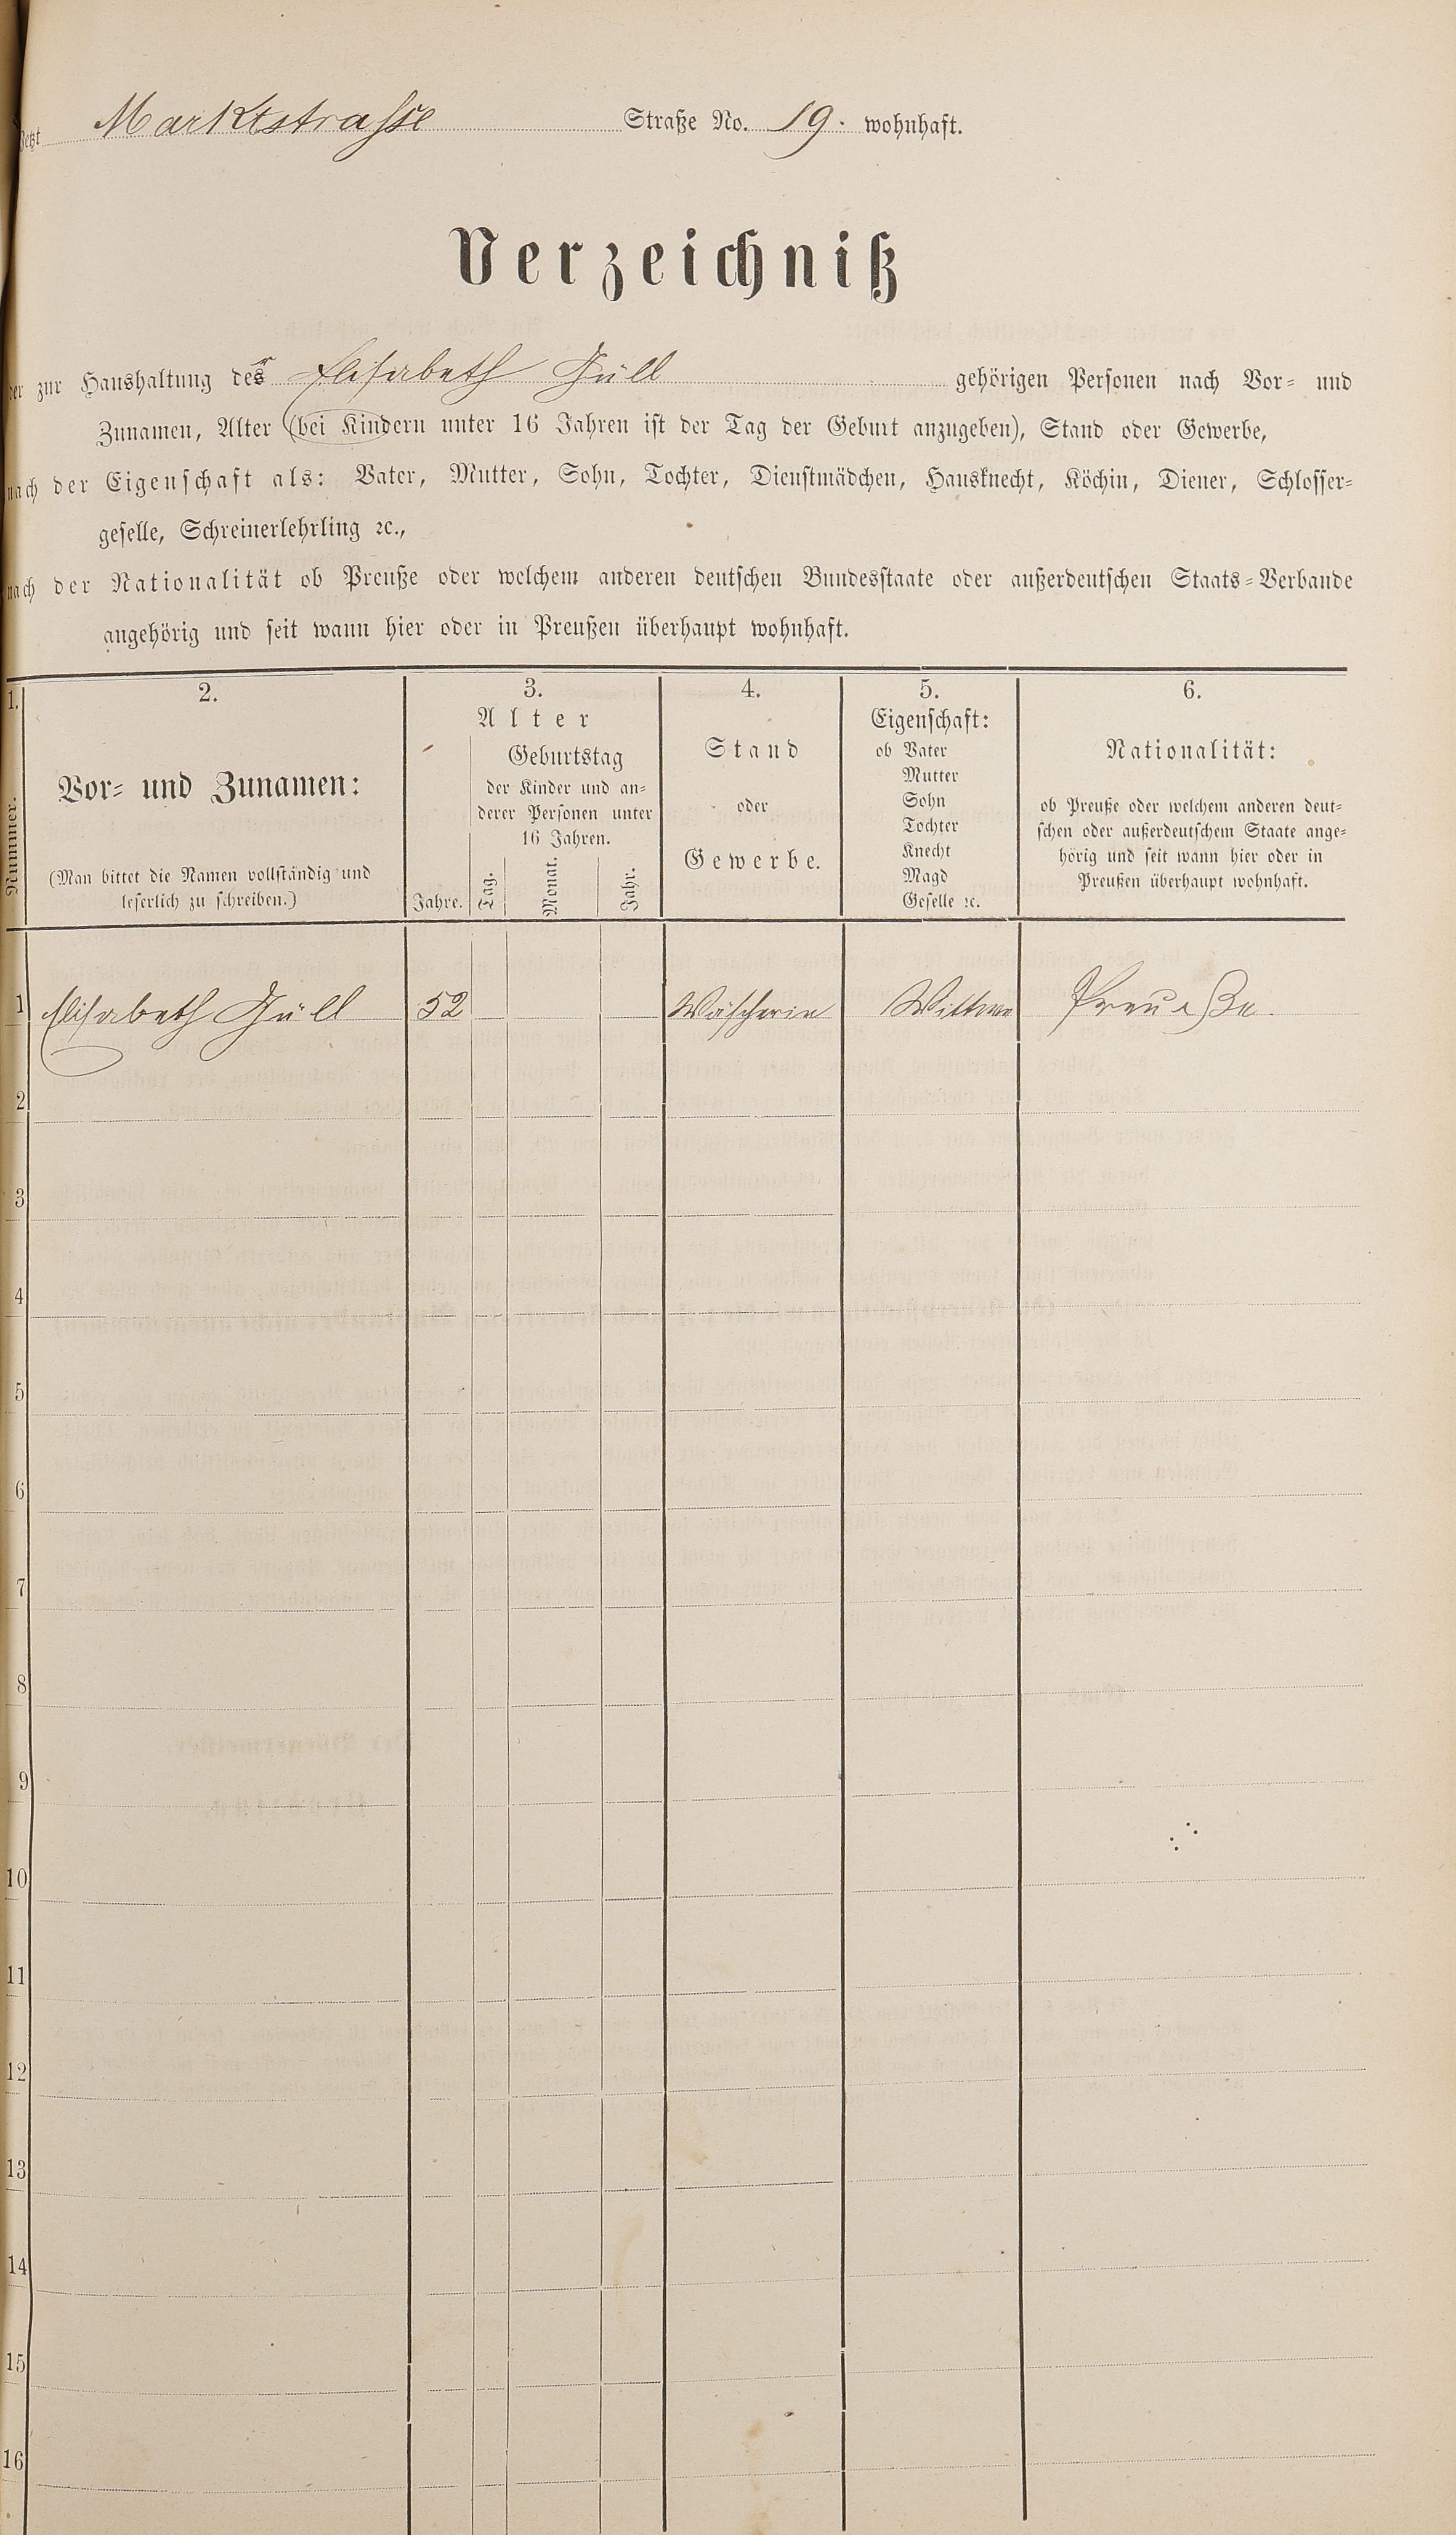 Jetzt Marktstrasse Straße No. 19. wohnhaft.
Verzeichniß
der zur Haushaltung des r Elisabeth Güll gehörigen Personen nach Vor- und
Zunamen, Alter (bei Kindern unter 16 Jahren ist der Tag der Geburt anzugeben), Stand oder Gewerbe,
nach der Eigenschaft als: Vater, Mutter, Sohn, Tochter, Dienstmädchen, Hausknecht, Köchin, Diener, Schlosser-
geselle, Schreinerlehrling ꝛc.,
nach der Nationalität ob Preuße oder welchem anderen deutschen Bundesstaate oder außerdeutschen Staats-Verbande
angehörig und seit wann hier oder in Preußen überhaupt wohnhaft.
1.
Nummer.
2.
Vor- und Zunamen:
(Man bittet die Namen vollständig und
leserlich zu schreiben.)
3.
Alter
Jahre.
Geburtstag
der Kinder und an-
derer Personen unter
16 Jahren.
Tag.
Monat.
Jahr.
4.
Stand
oder
Gewerbe.
5.
Eigenschaft:
ob Vater
Mutter
Sohn
Tochter
Knecht
Magd
Geselle ꝛc.
6.
Nationalität:
ob Preuße oder welchem anderen deut-
schen oder außerdeutschem Staate ange-
hörig und seit wann hier oder in
Preußen überhaupt wohnhaft.
1 Elisabeth Güll 52 Wäscherin Wittwe Preuße.
2
3
4
5
6
7
8
9
10
11
12
13
14
15
16